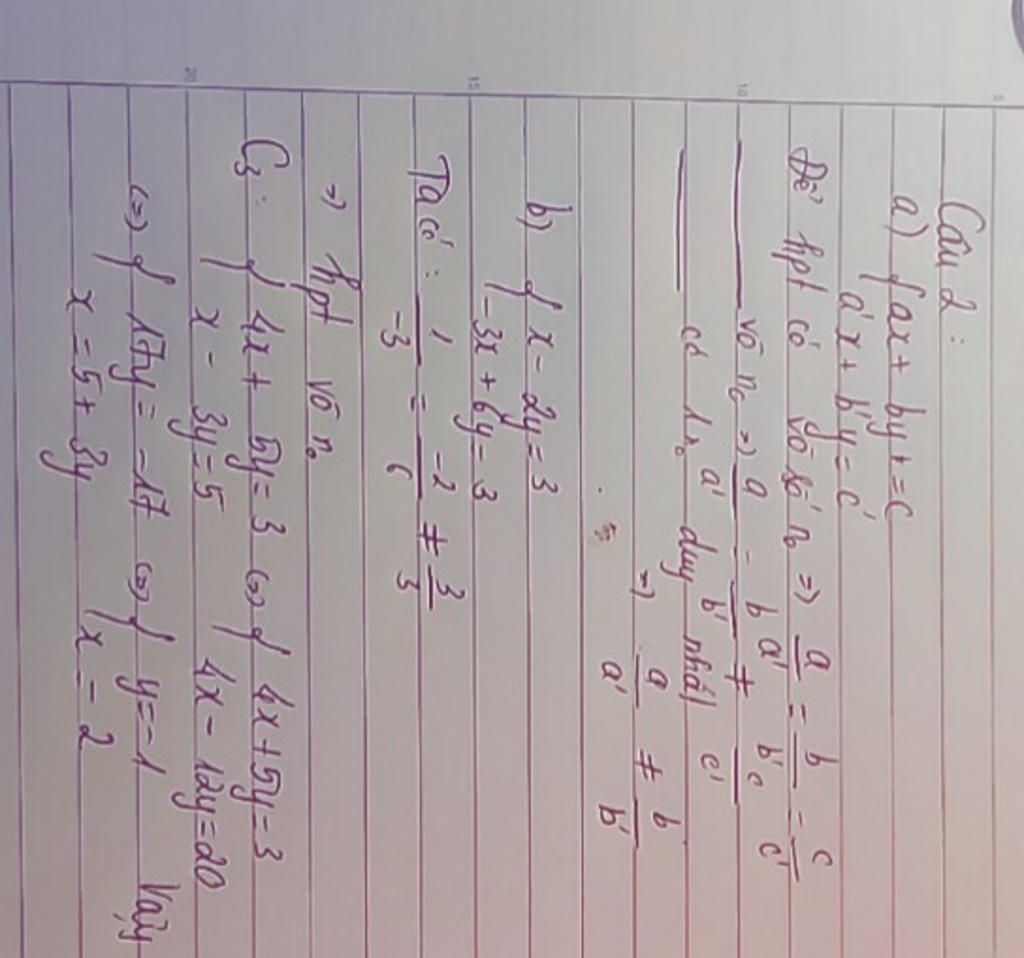 Câu 2:
a) { ax + by + = c
a'x + b'y = c'
Để hpt có vô số n₀ => a/a' = b/b' = c/c'
vô n₀ => a/a' = b/b' ≠ c/c'
có 1 n₀ duy nhất
=> a/a' ≠ b/b'
b) { x - 2y = 3
-3x + 6y = 3
Ta có: 1/-3 = -2/6 ≠ 3/3
=> hpt vô n₀
C3: { 4x + 5y = 3 <=> { 4x + 5y = 3
x - 3y = 5 4x - 12y = 20
<=> { 17y = -17 <=> { y = -1 Vậy
x = 5 + 3y x = 2
5
10
15
20